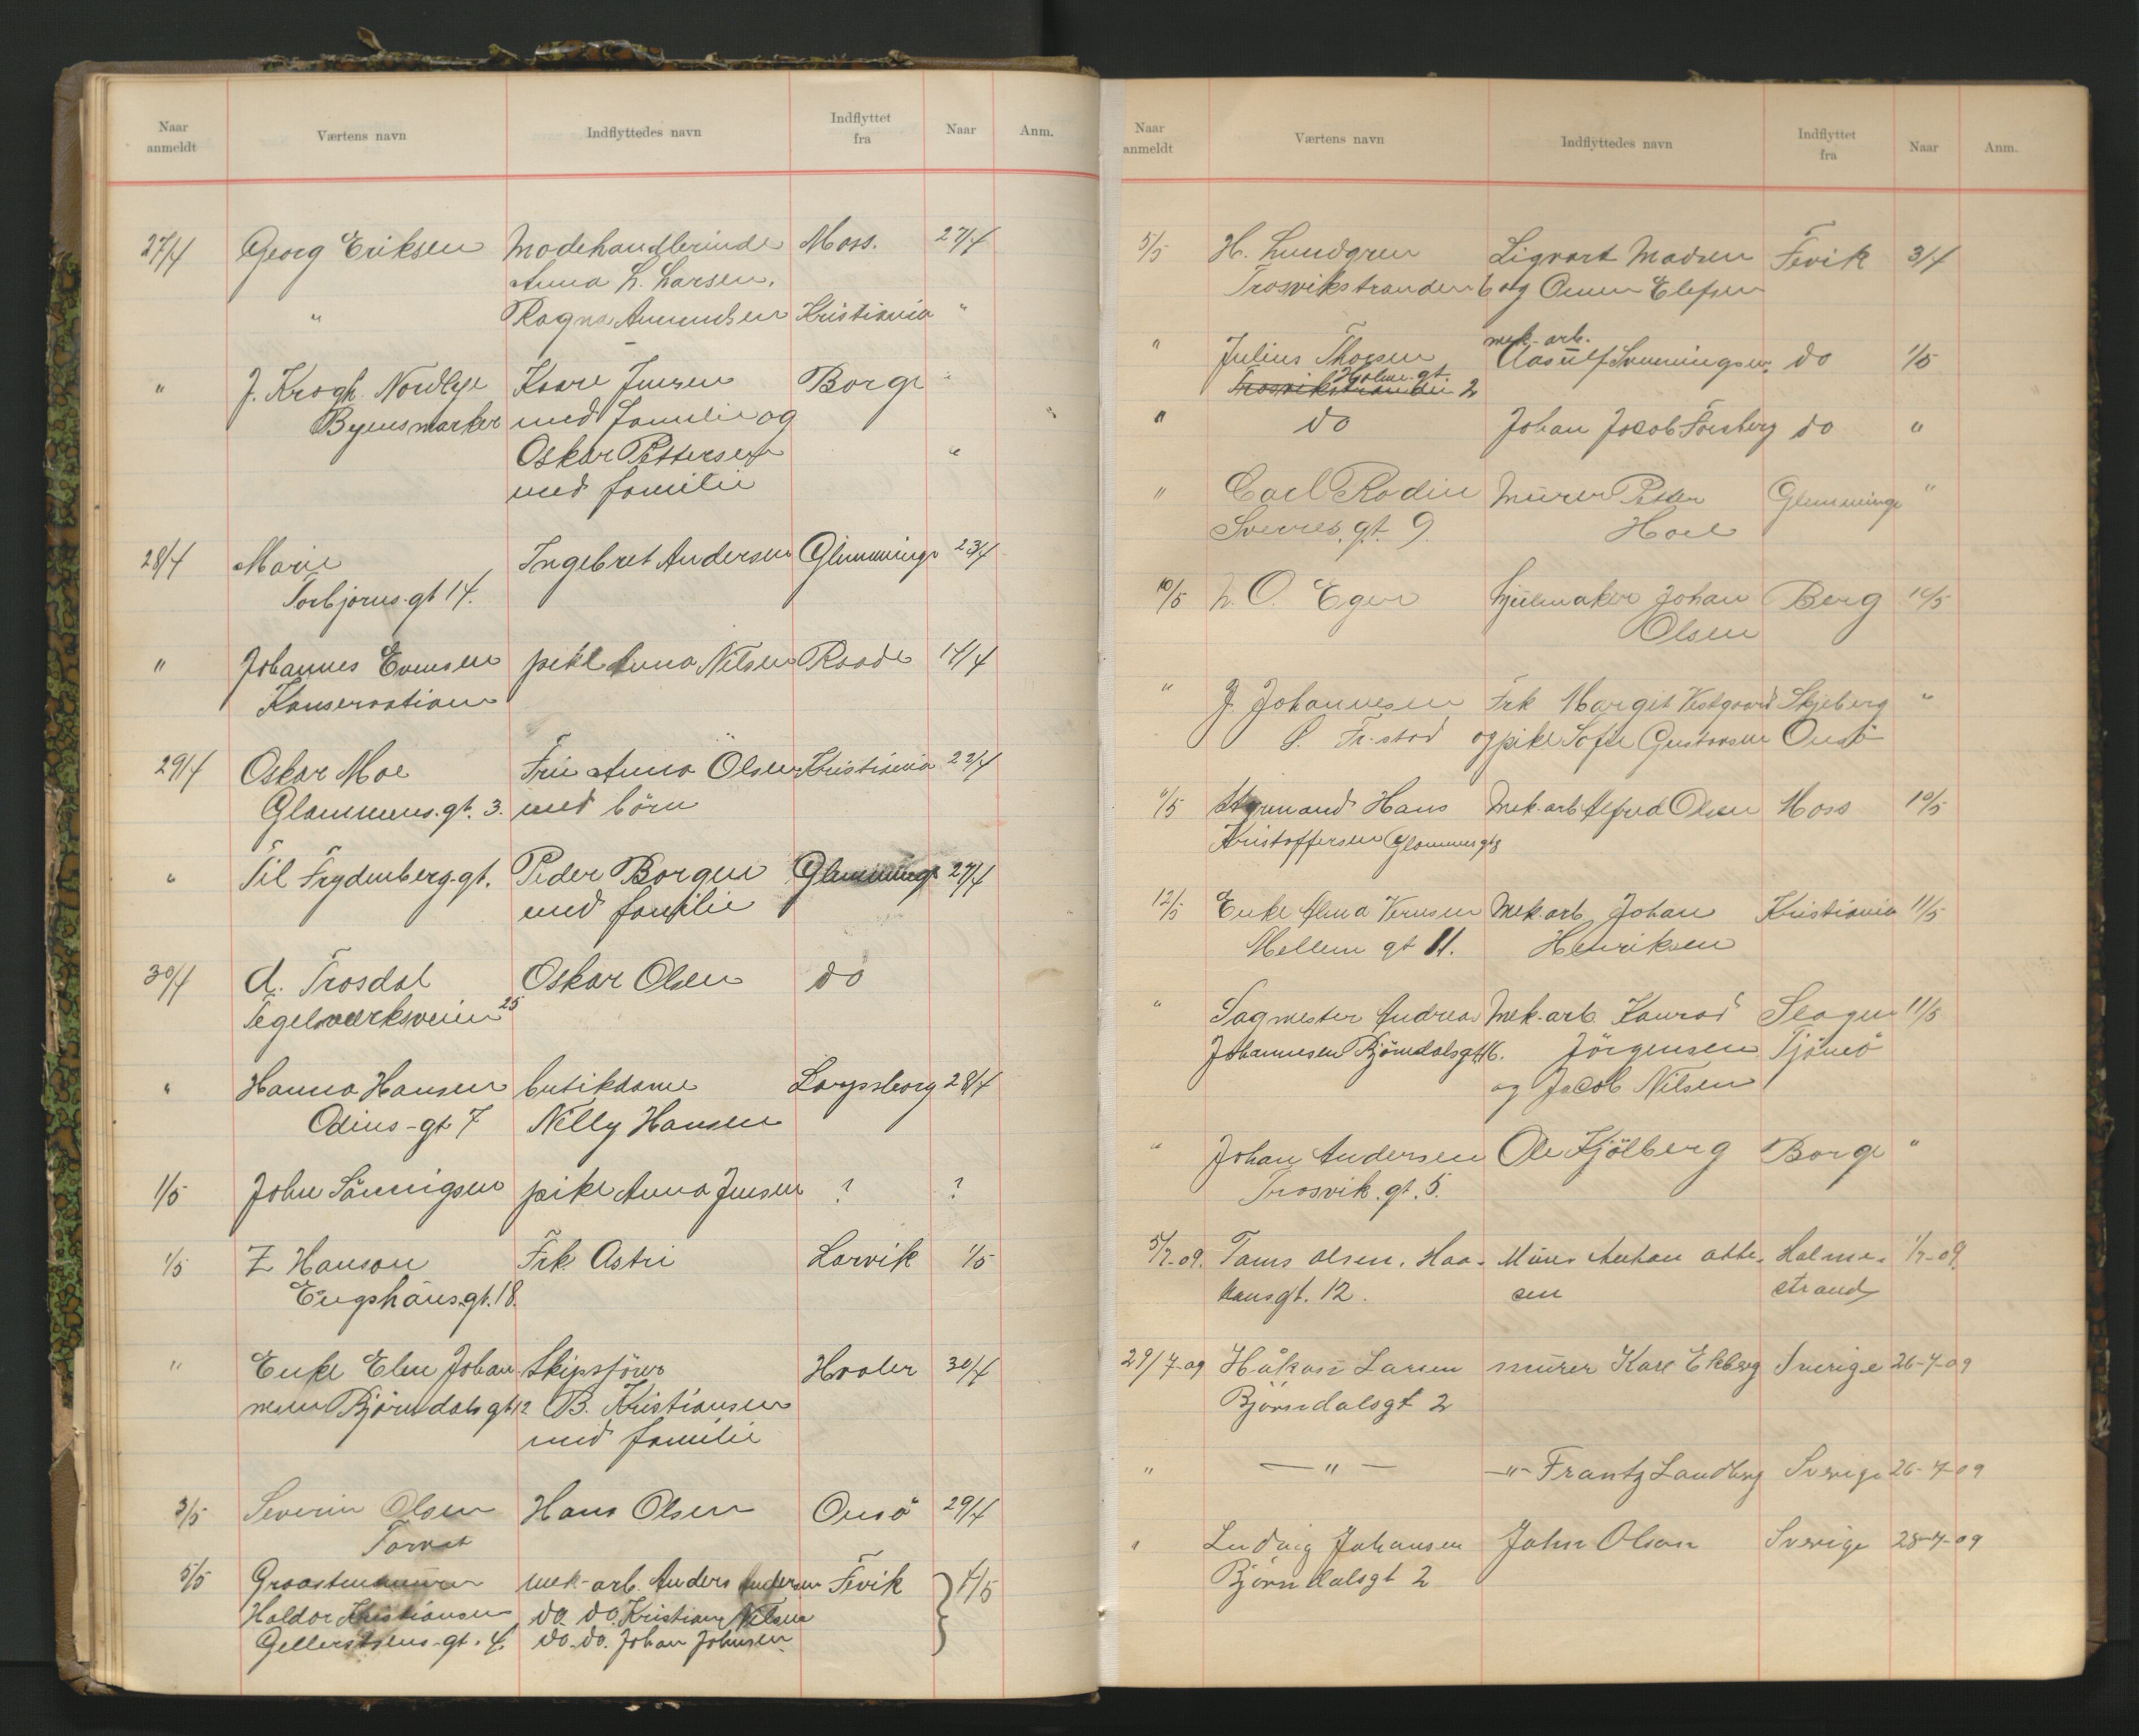 Naar anmeldt Værtens navn Indflyttedes navn Indflyttet fra Naar Anm.
27/4 Georg Eriksen Modehandlerinde Moss. 27/4
Anna L. Larsen.
" Ragna Amundsen Kristiania "
" J. Krogh. Nordbye Kaare Jensen Borge "
Byensmarker med familie og "
Oskar Pettersen "
med familie
28/4 Marie Ingebret Andersen Glemminge 23/4
Torbjørns-gt 14.
" Johannes Evensen pike Anna Nilsen Raade 14/4
Konservation
29/4 Oskar Moe Frü Anna Olsen Kristiania 22/4
Glommens.gt. 3. med børn
" Til Frydenberg-gt. Peder Borgen Glemminge 27/4
med familie
30/4 A. Trosdal Oskar Olsen do
Tegelværksveien 25
" Hanna Hansen butikdame Sarpsborg 28/4
Odins-gt 7 Nelly Hansen
1/5 John pike Anna Jensen ? ?
1/5 Z Hanson Frk. Astri Larvik 1/5
Engshäus.gt. 18.
" Enke Elen Johan- Skipsfører Hvaler 30/4
nesen Bjørndals gt 12 B. Kristiansen
med familie
3/5 Severin Olsen Hans Olsen Onsö 29/4
Torvet
5/5 mek-arb. Anders Andersen Fevik } 1/5
Haldor Kristiansen do. do. Kristian Nilsen
gt. 4. do. do. Johan Johnsen
Naar anmeldt Værtens navn Indflyttedes navn Indflyttet fra Naar Anm.
5/5 H. Lundgren Sigvart Madsen Fevik 3/4
Trosvikstranden 6 og Elefsen
mek-arb.
" Julius Thorsen Aasülf do 1/5
Holme.gt.
Trosvikstranden 2
" do Johan Jacob Forsberg do "
" Carl Rodin Mürer Peder Glemminge "
Sverres.gt. 9. Hoel
10/5 O. Eger hjulmaker Johan Berg 10/5
Olsen
" J. Johannesen Frk Margit Vestgaard Skjeberg "
Fr-stad og pike Sofie Gustavsen Onsö
11/5 Styrmand Hans Mek.arb Alfred Olsen Moss 10/5
Kristoffersen Glommensgt 8
12/5 Enke Alma Mek.arb. Johan Kristiania 11/5
Mellem gt 11. Henriksen
" Sagmester Andreas Mek.arb. Konrad Slagen 11/5
Johannesen Bjørndalsgt 16. Jörgensen Tjömö
og Jacob Nilsen
" Johan Andersen Ole Kjölberg Borge "
Trosvik.gt. 5.
5/7-09. Toms Olsen. Haa- Mürer Anton Otte- Holme- 1/7-09.
konsgt. 12. sen strand
29/7-09 Håkon Larsen mürer Karl Ekberg Sverige 26-7-09
Bjørndalsgt 2
" — " — -"- Frantz Landberg Sverige 26-7-09
" Ludvig Johansen John Olson Sverige 28-7-09
Bjørndalsgt 2